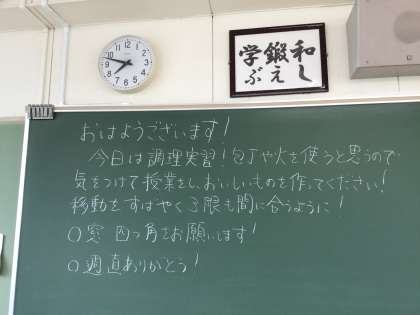 和し
鍛え
学ぶ
おはようございます!
今日は調理実習!包丁や火を使うと思うので
気をつけて授業をし、おいしいものを作ってください!
移動をすばやく3限も間に合うように!
○窓 四つ角をお願いします!
○週直ありがとう!